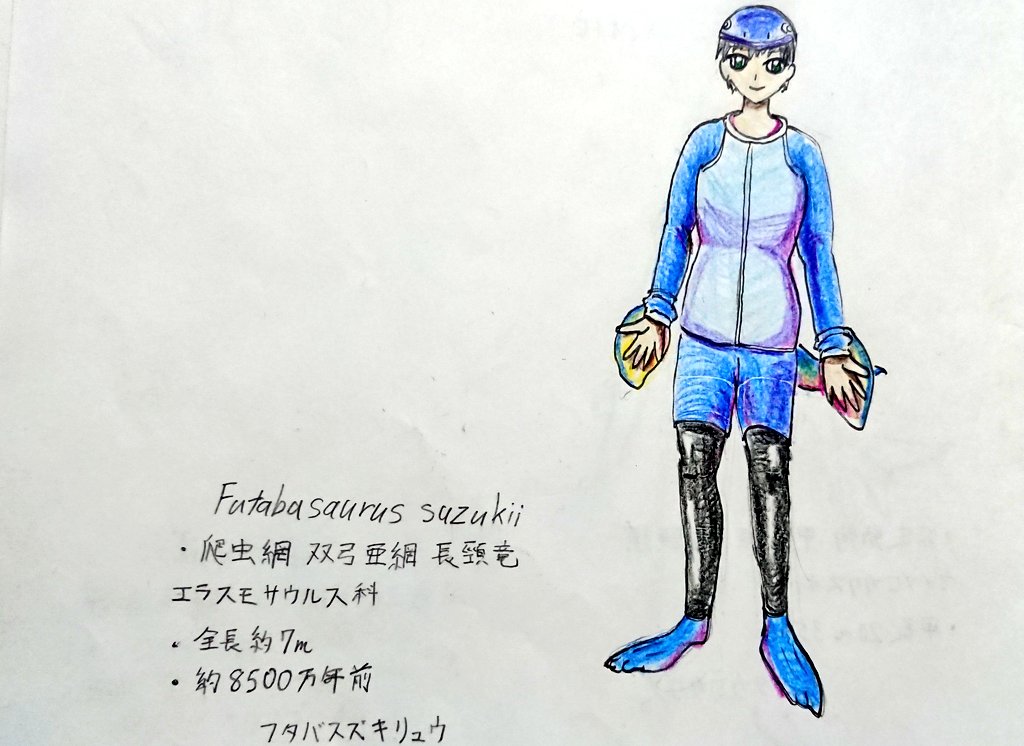 Futabasaurus suzukii
・爬虫網 双弓亜網 長頸竜
エラスモサウルス科
・全長約7m
・約8500万年前
フタバスズキリュウ